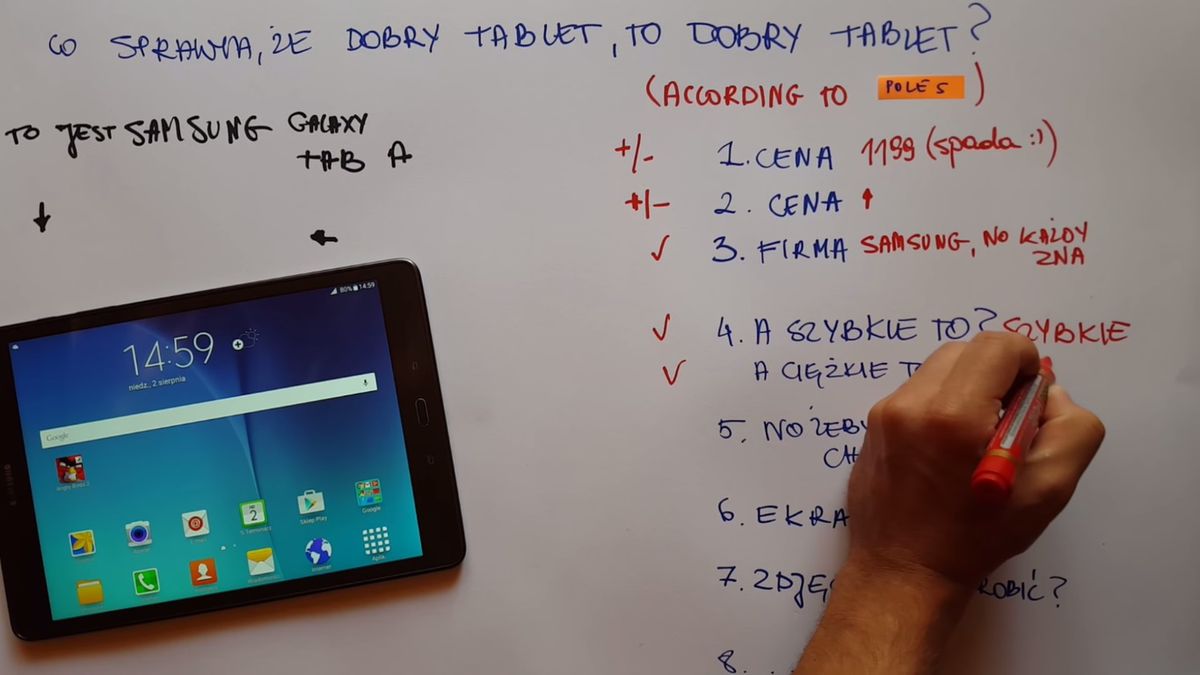 CO SPRAWIA, ŻE DOBRY TABLET, TO DOBRY TABLET?
(ACCORDING TO POLES)
TO JEST SAMSUNG GALAXY
TAB A
+/- 1. CENA 1199 (spada :))
+/- 2. CENA
✓ 3. FIRMA SAMSUNG, NO KAŻDY
ZNA
✓ 4. A SZYBKIE TO? SZYBKIE
✓ A CIĘŻKIE
5. NO ŻEBY
6. EKRA
7. ZDJĘ ROBIĆ?
8. . .
80% 14:59
14:59
niedz., 2 sierpnia
Google
Angry Birds 2
S Terminarz
2
Sklep Play
Google
Wiadomości
Internet
Aplik.
SAMSUNG